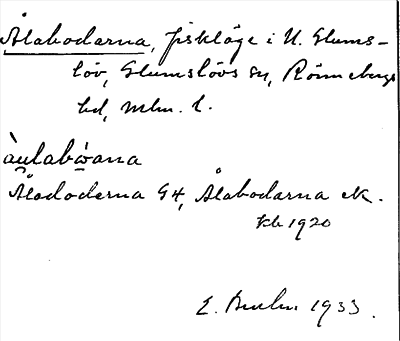 Ålabodarna, fiskläge i N. Glums-
löv, Glumslövs sn, Rönnebergs
hd, Mlm. l.
àulabѡ̀ana
Ålaboderna GK, Ålabodarna ek.
kb 1920
1933.